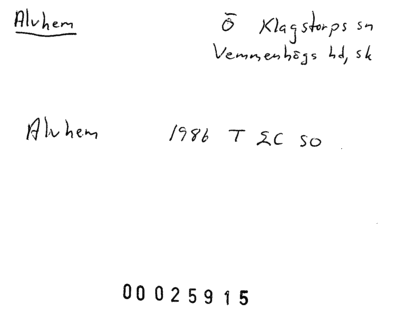 Alvhem
Ö Klagstorps sn
Vemmenhögs hd, sk
Alvhem 1986 T ΣC SO
00025915